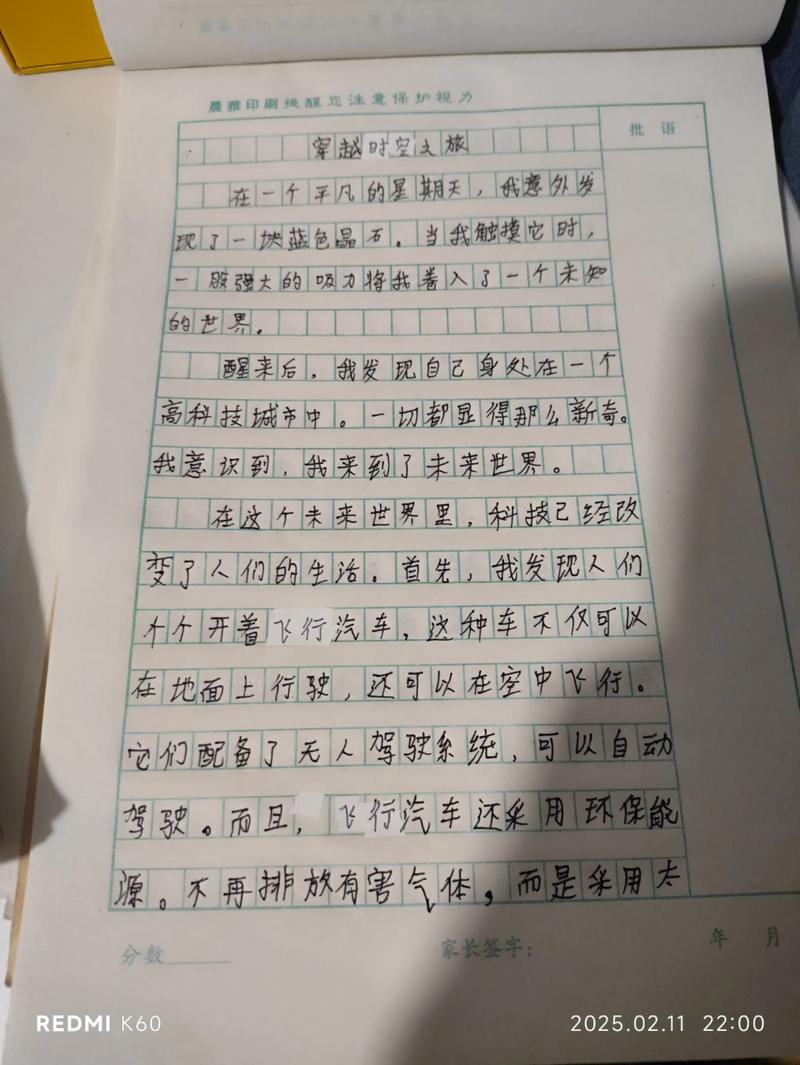 晨雅印刷提醒您注意保护视力
批语
穿越时空之旅
在一个平凡的星期天，我意外发
现了一块蓝色晶石。当我触摸它时，
一股强大的吸力将我卷入了一个未知
的世界。
醒来后，我发现自己身处在一个
高科技城市中。一切都显得那么新奇。
我意识到，我来到了未来世界。
在这个未来世界里，科技已经改
变了人们的生活。首先，我发现人们
个个开着飞行汽车，这种车不仅可以
在地面上行驶，还可以在空中飞行。
它们配备了无人驾驶系统，可以自动
驾驶。而且，飞行汽车还采用环保能
源。不再排放有害气体，而是采用太
分数
家长签字：
年 月
REDMI K60
2025.02.11 22:00